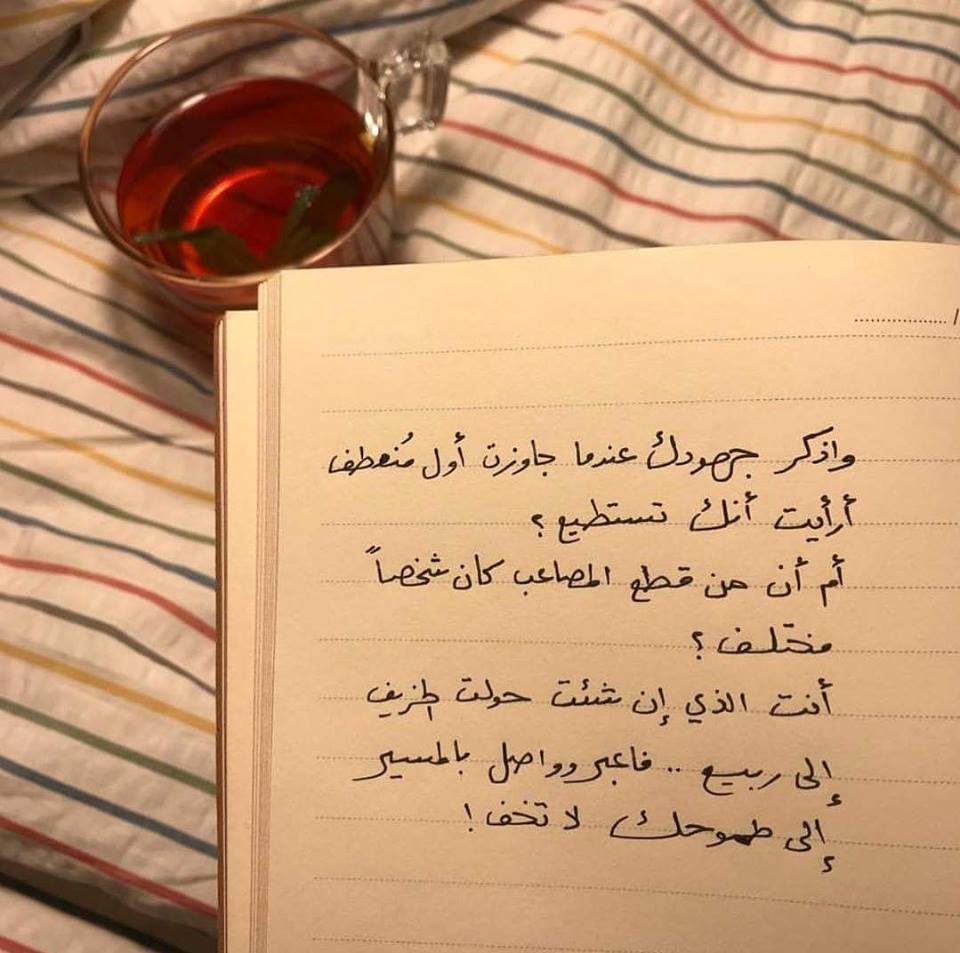 واذكر جهودكَ عندما جاوزت أول مُنعطف
أرأيت أنك تستطيع ؟
أم أن من قطع المصاعب كان شخصاً
مختلف ؟
أنت الذي إن شئت حولت الخريف
إلى ربيع .. فاعبر وواصل بالمسير
إلى طموحك لا تخف !